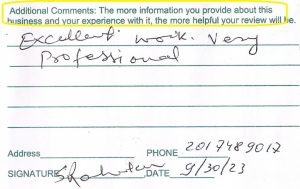 Additional Comments: The more information you provide about this
business and your experience with it, the more helpful your review will be.
Excellent work. Very
Professional
Address PHONE 2017489017
SIGNATURE DATE 9/30/23